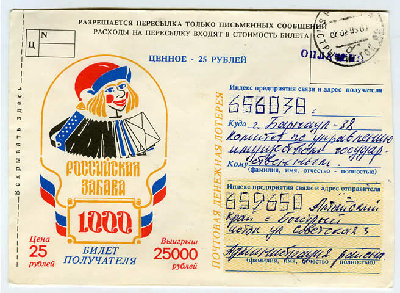 РАЗРЕШАЕТСЯ ПЕРЕСЫЛКА ТОЛЬКО ПИСЬМЕННЫХ СООБЩЕНИЙ
РАСХОДЫ НА ПЕРЕСЫЛКУ ВХОДЯТ В СТОИМОСТЬ БИЛЕТА
Ц N
ЦЕННОЕ - 25 РУБЛЕЙ
ОПЛАЧЕ
Вскрывать здесь
РОССИЙСКАЯ
ЗАБАВА
1000
Цена
25
рублей
БИЛЕТ
ПОЛУЧАТЕЛЯ
Выигрыш
25000
рублей
ПОЧТОВАЯ ДЕНЕЖНАЯ ЛОТЕРЕЯ
Индекс предприятия связи и адрес получателя
656038.
Куда г. Барнаул-38
комитет по управлению
имуществом государ
Кому ственным.
(фамилия, имя, отчество - полностью)
Индекс предприятия связи и адрес отправителя
659650 Алтайский
край с.
ул Советская
Администрация района
(фамилия, имя, отчество - полностью)